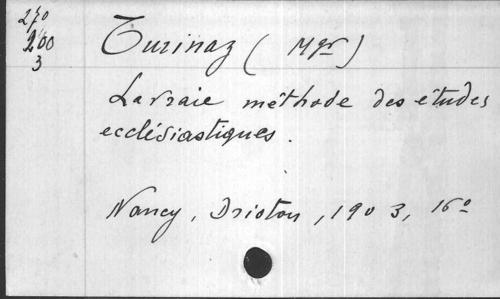 270
200
3
Turinaz ( Mgr )
La vraie méthode des études
ecclésiastiques.
Nancy, Drioton, 1903, 16º